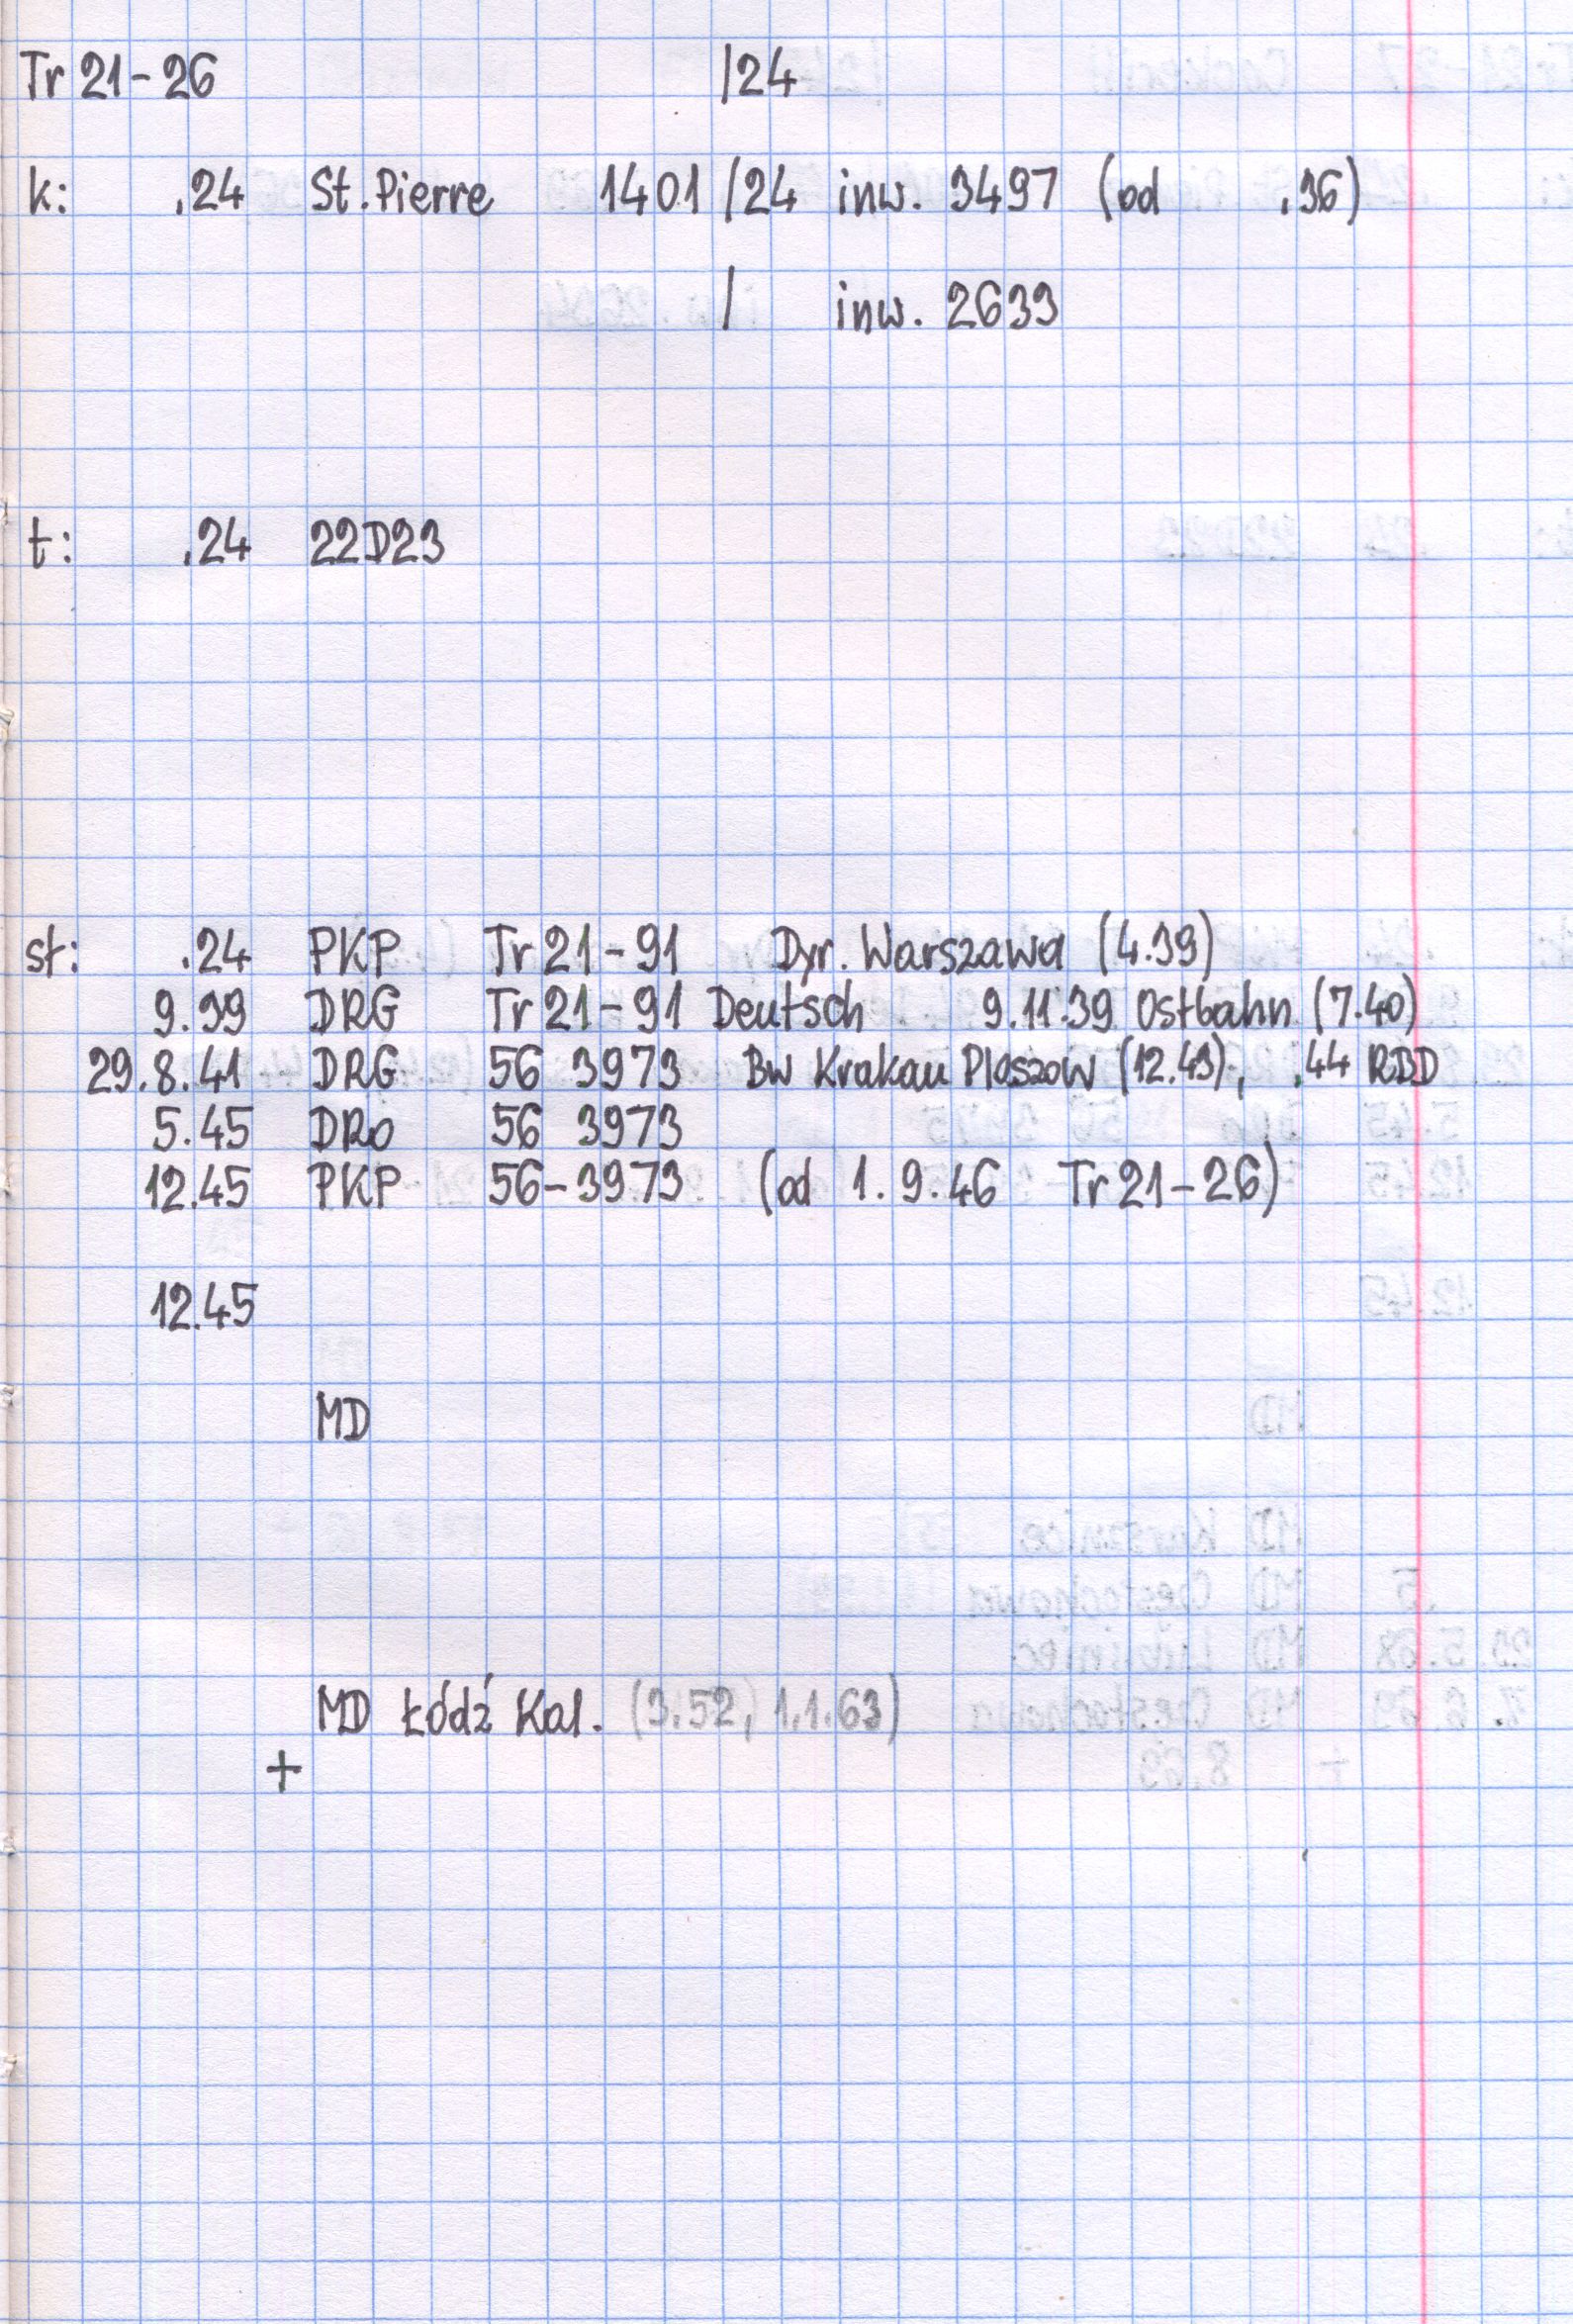 Tr 21-26 /24
k: .24 St. Pierre 1401 /24 inw. 3497 (od .36)
/ inw. 2633
t: .24 22D23
st: .24 PKP Tr 21-91 Dyr. Warszawa (4.39)
9.39 DRG Tr 21-91 Deutsch 9.11.39 Ostbahn (7.40)
29.8.41 DRG 56 3973 Bw Krakau Plaszow (12.43), .44 RBD
5.45 DRo 56 3973
12.45 PKP 56-3973 (od 1.9.46 Tr 21-26)
12.45
MD
MD Łódź Kal. (3.52, 1.1.63)
+